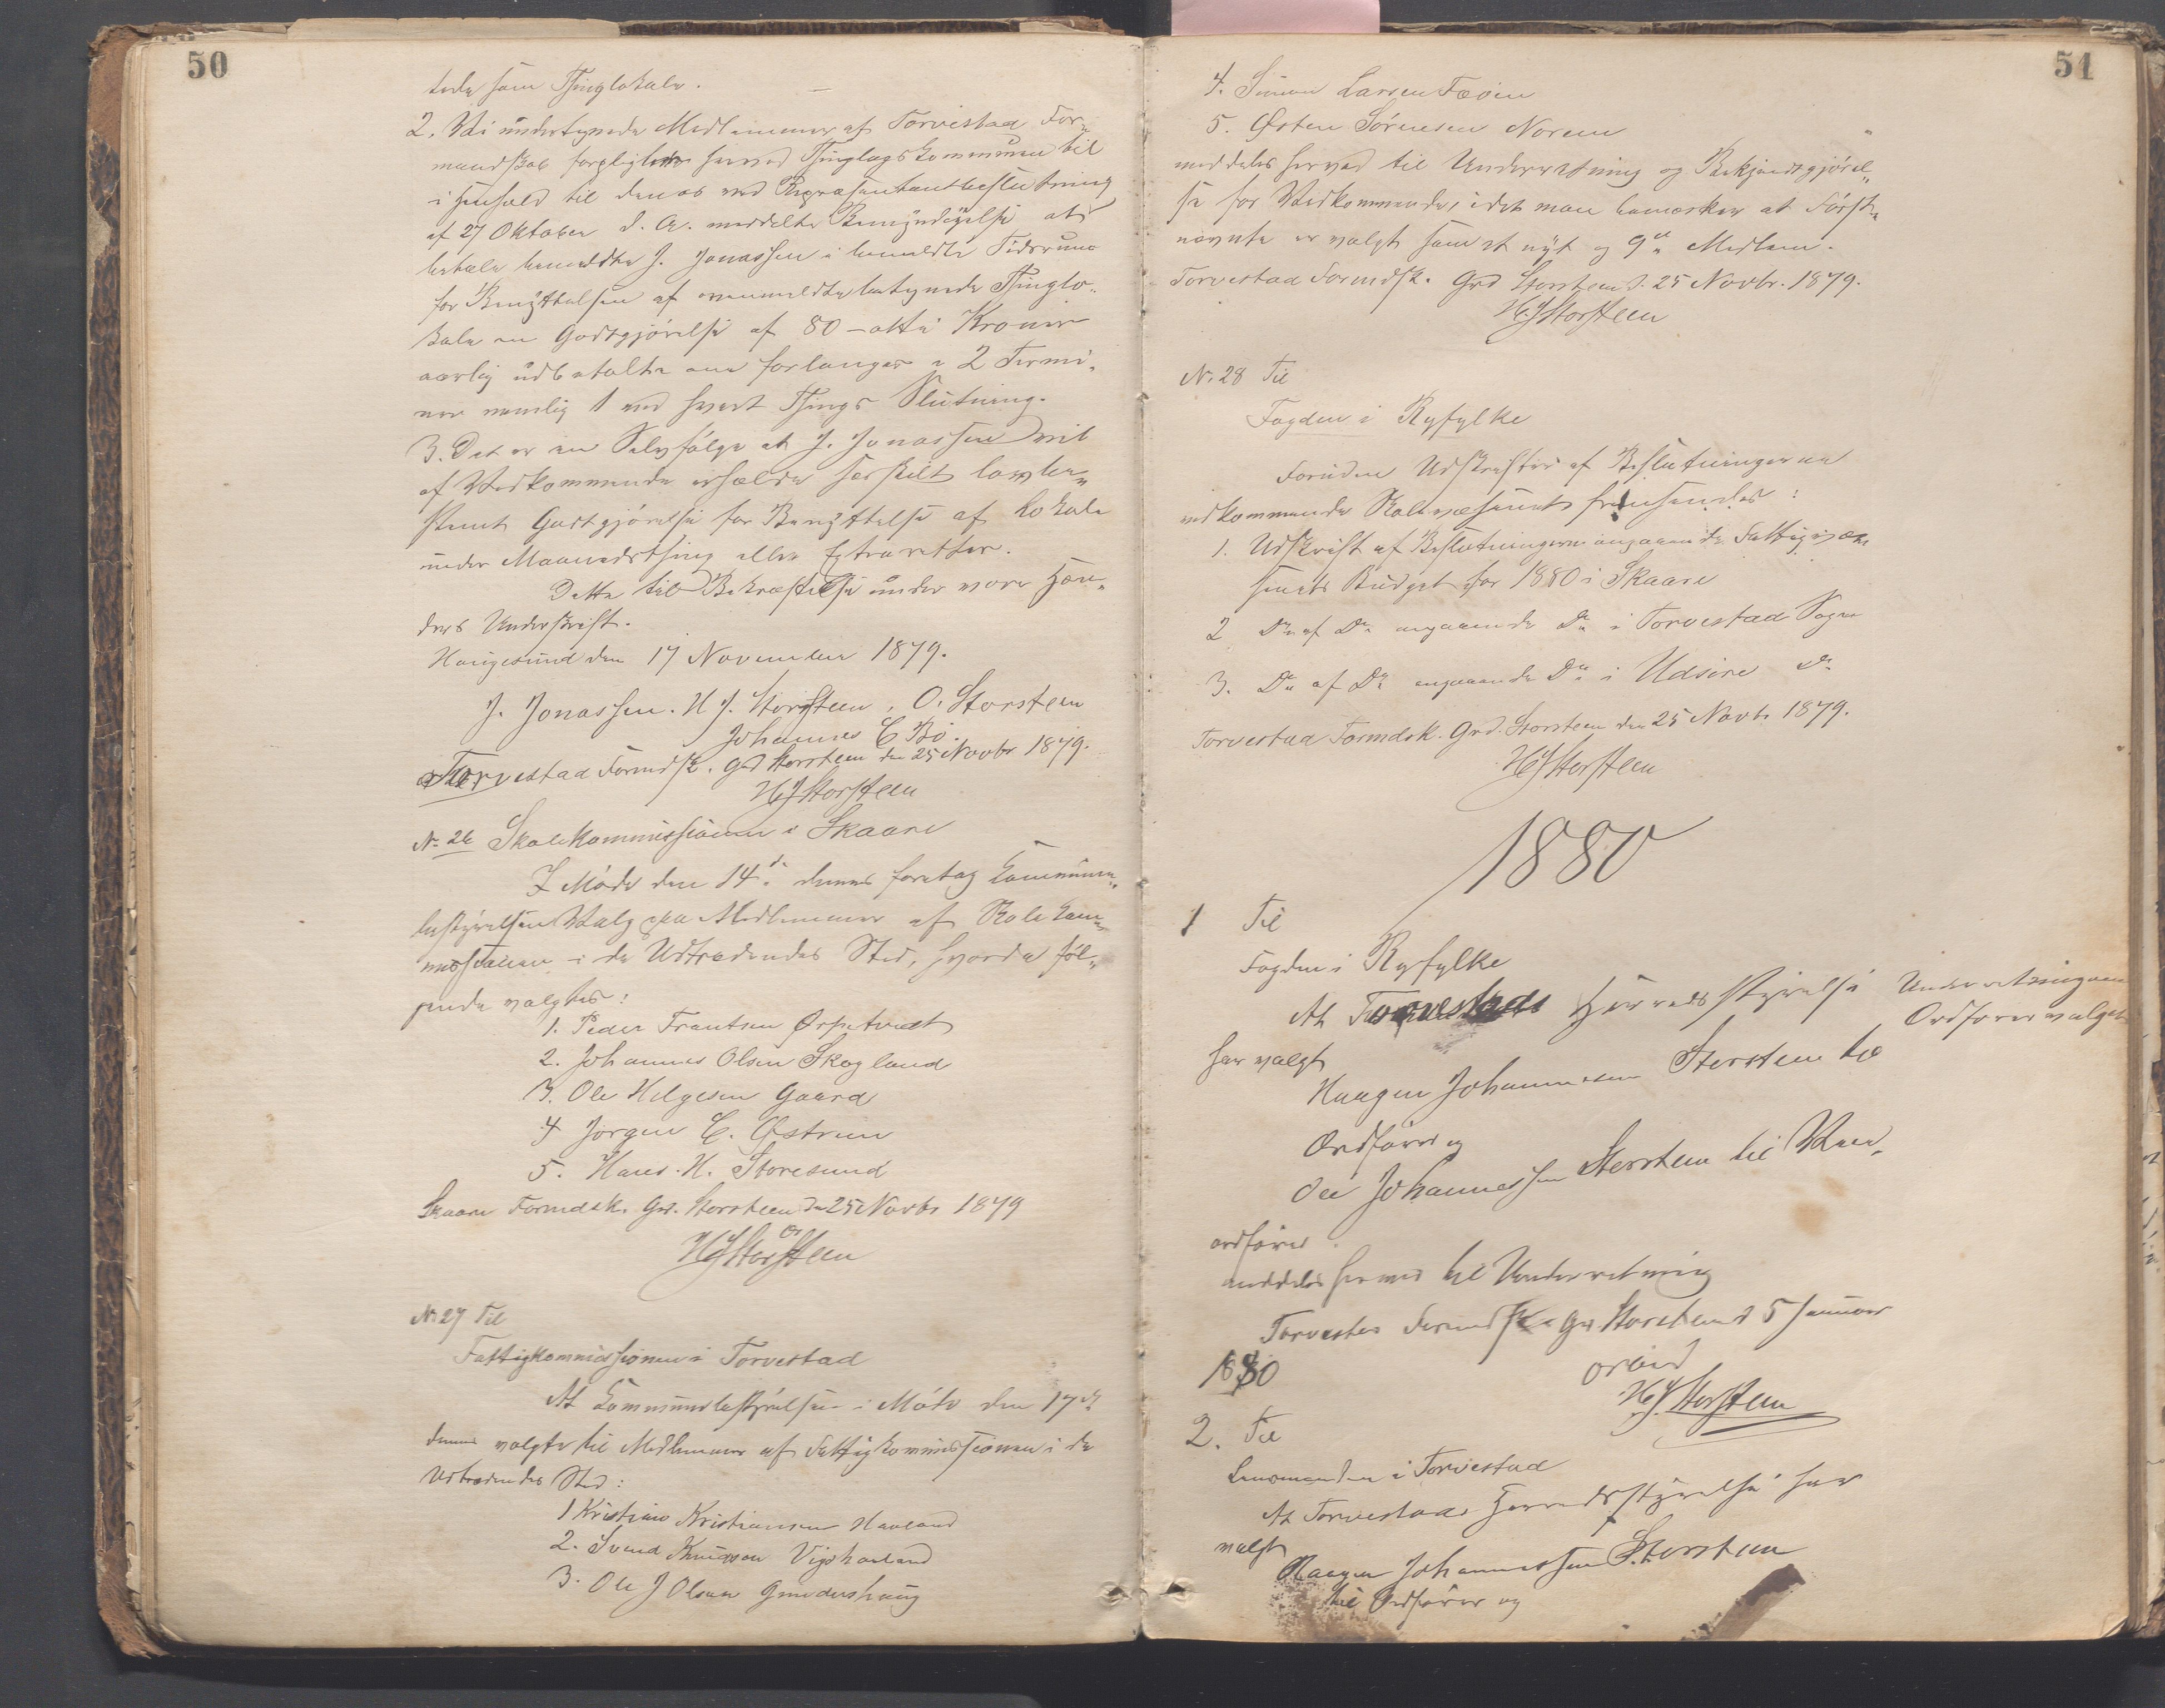 50
tede som Thinglokale.
2. Vi undertegnede Medlemmer af Torvestad For-
mandskab forpligter herved Thinglagskommunen til
i Henhold til den os ved Repræsentantbeslutning
af 27 Oktober d. A. meddelte Bemyndigelse at
betale bemeldte J. Jonassen i bemeldte Tidsrum
for Benyttelsen af ovenmeldte betegnede Thinglo-
kale en Godtgjørelse af 80 – otti Kroner
aarlig udbetalte om forlanges i 2 Termi-
ner nemlig 1 ved hvert Things Slutning.
3. Det er en Selvfølge at J. Jonassen vil
af Vedkommende erholde særskilt lovbe-
stemt Godtgjørelse for Benyttelse af Lokale
under Maanedsthing eller Extraretter.
Dette til Bekræftelse under vore Hæn-
ders Underskrift.
Haugesund den 17 November 1879.
J. Jonassen. H J. Storsteen, O. Storsteen
Johannes E Bø.
Torvestad Formdsk. Grd Storsteen den 25 Novbr 1879.
HJStorsteen
No 26 Skolekommissionen i Skaare
I Møde den 14de dennes foretog Kommune-
bestyrelsen Valg paa Medlemmer af Skolekom-
missionen i de Udtrædendes Sted, hvorda føl-
gende valgtes:
1. Peder Frantsen Ørpetvedt
2. Johannes Olsen Skogland
3. Ole Helgesen Gaard
4 Jørgen E. Østrem
5. Hans. H. Storesund
Skaare Formdsk. Grd. Storsteen d 25 Novbr 1879
HJStorsteen
No 27 Til
Fattigkommissionen i Torvestad
At Kommunebestyrelsen i Møde den 17de
dennes valgte til Medlemmer af Fattigkommissionen i de
Udtrædendes Sted:
1 Kristian Kristiansen Haaland
2. Svend Knudsen Vigshaaland
3. Ole J Olsen
51
4. Simon Larsen Fæøen
5. Østen Sørensen Norem
meddeles herved til Underretning og Bekjendtgjørel-
se for Vedkommende, idet man bemærker at Først-
nævnte er valgt som et nyt og 9de Medlem.
Torvestad Formdsk. Grd Storsteen d. 25 Novbr. 1879.
HJStorsteen
No. 28 Til
Fogden i Ryfylke
Foruden Udskrifter af Beslutningerne
vedkommende Skolevæsenet fremsendes:
1. Udskrift af Beslutningerne angaaende Fattigvæ-
senets Budget for 1880 i Skaare
2 Do af Do angaaende Do i Torvestad Sogn
3. Do af Do angaaende Do i Udsire Do
Torvestad Formdsk. Grd. Storsteen den 25 Novbr 1879.
HJStorsteen
1880
1 Til
Fogden i Ryfylke
At Torvestads Herredsstyrelse
Underretning om
Ordførervalget
har valgt
Haagen Johannessen Storsteen til
Ordfører og
Ole Johannessen Storsteen til Vice-
ordfører.
meddeles herved til Underretning
Torvestad Formdsk Grd Storsteen d 5 Januar
1880
HJ. Storsteen
2. Til
Lensmanden i Torvestad
At Torvestads Herredsstyrelse har
valgt
Haagen Johannessen Storsteen
til Ordfører og